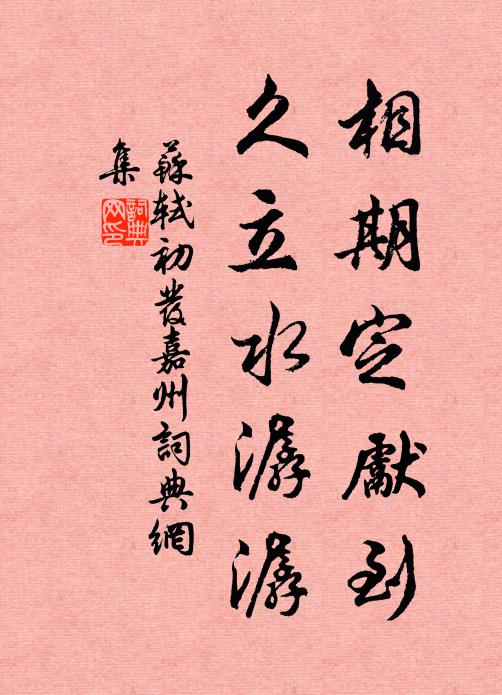 相期定獻到
久立水潺潺
蘇軾初發嘉州詞典網
集
詞典
网印